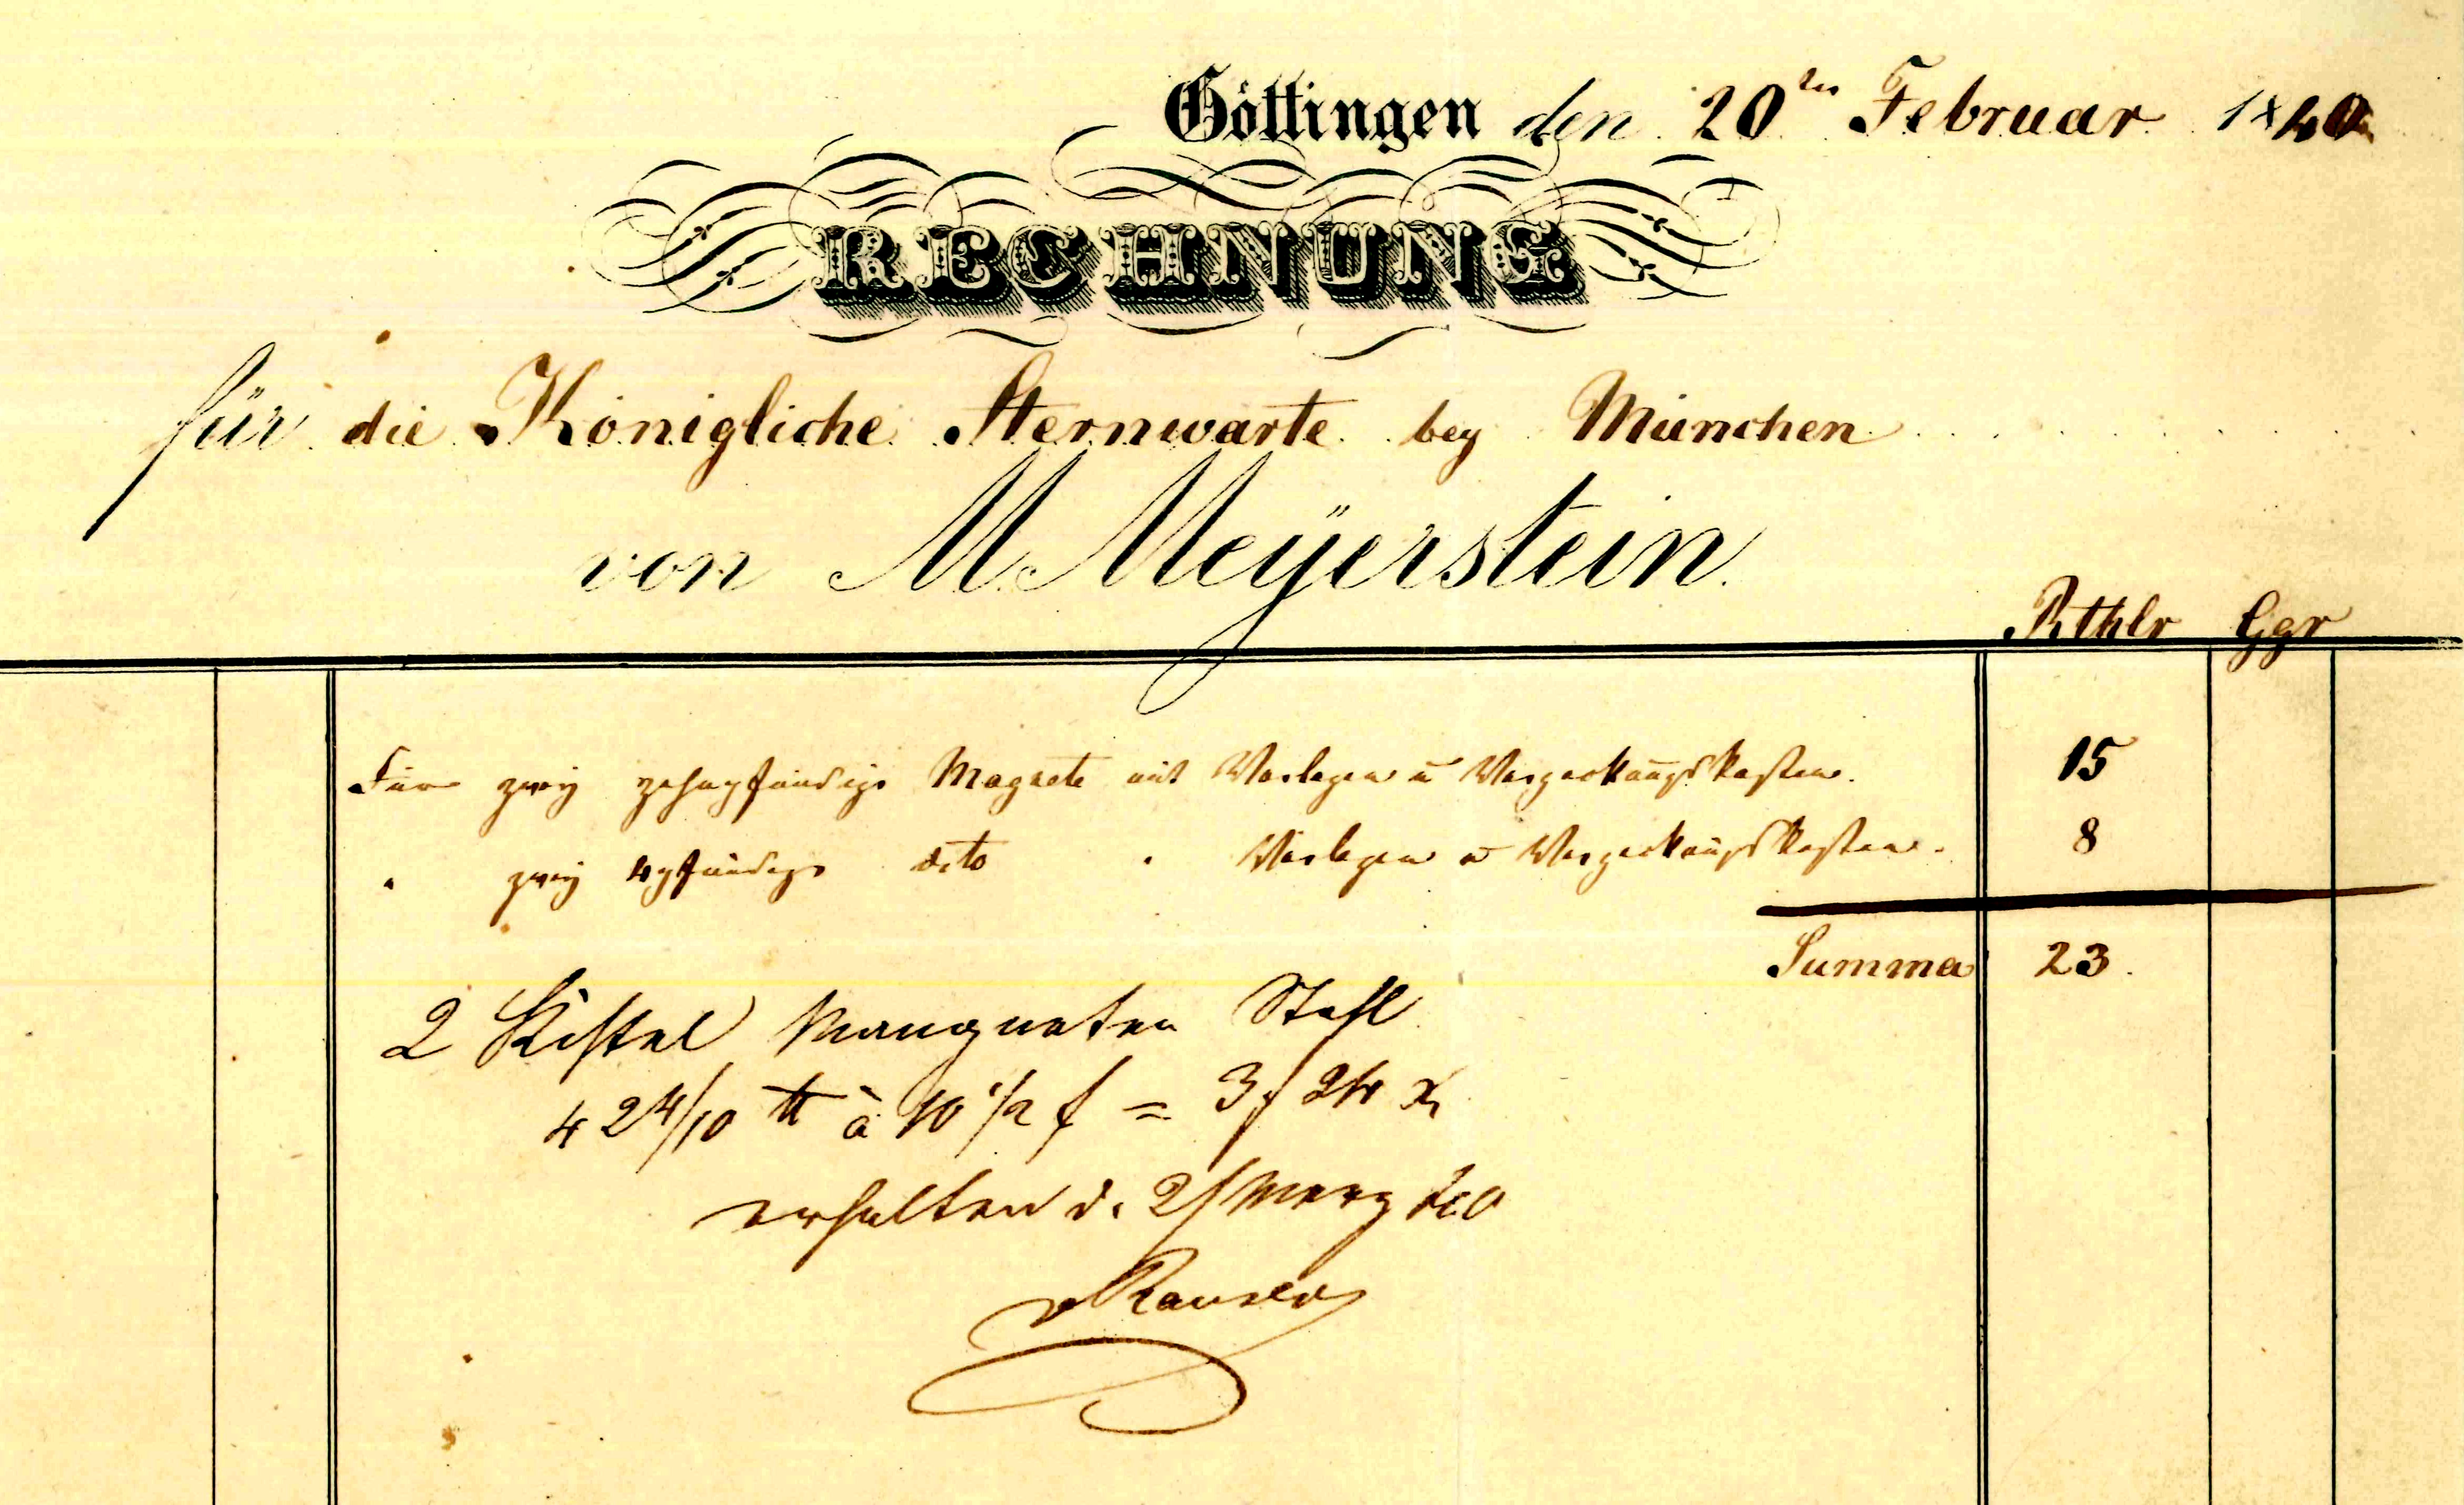 Göttingen den 20ten Februar 1840
RECHNUNG
für die Königliche Sternwarte bey München
von M. Meÿerstein.
Rthlr Ggr
Für zweÿ zehnpfündige Magnete mit Vorlegen u Verpackungskosten. 15
" zweÿ 4pfündige dito " Vorlegen u Verpackungskosten. 8
Summa 23.
2 Kistel Mangneten Stahl
42 4/10 ℔ à 10 1/2 f = 3 f 24 x
erhalten d. 2/ Merz 840